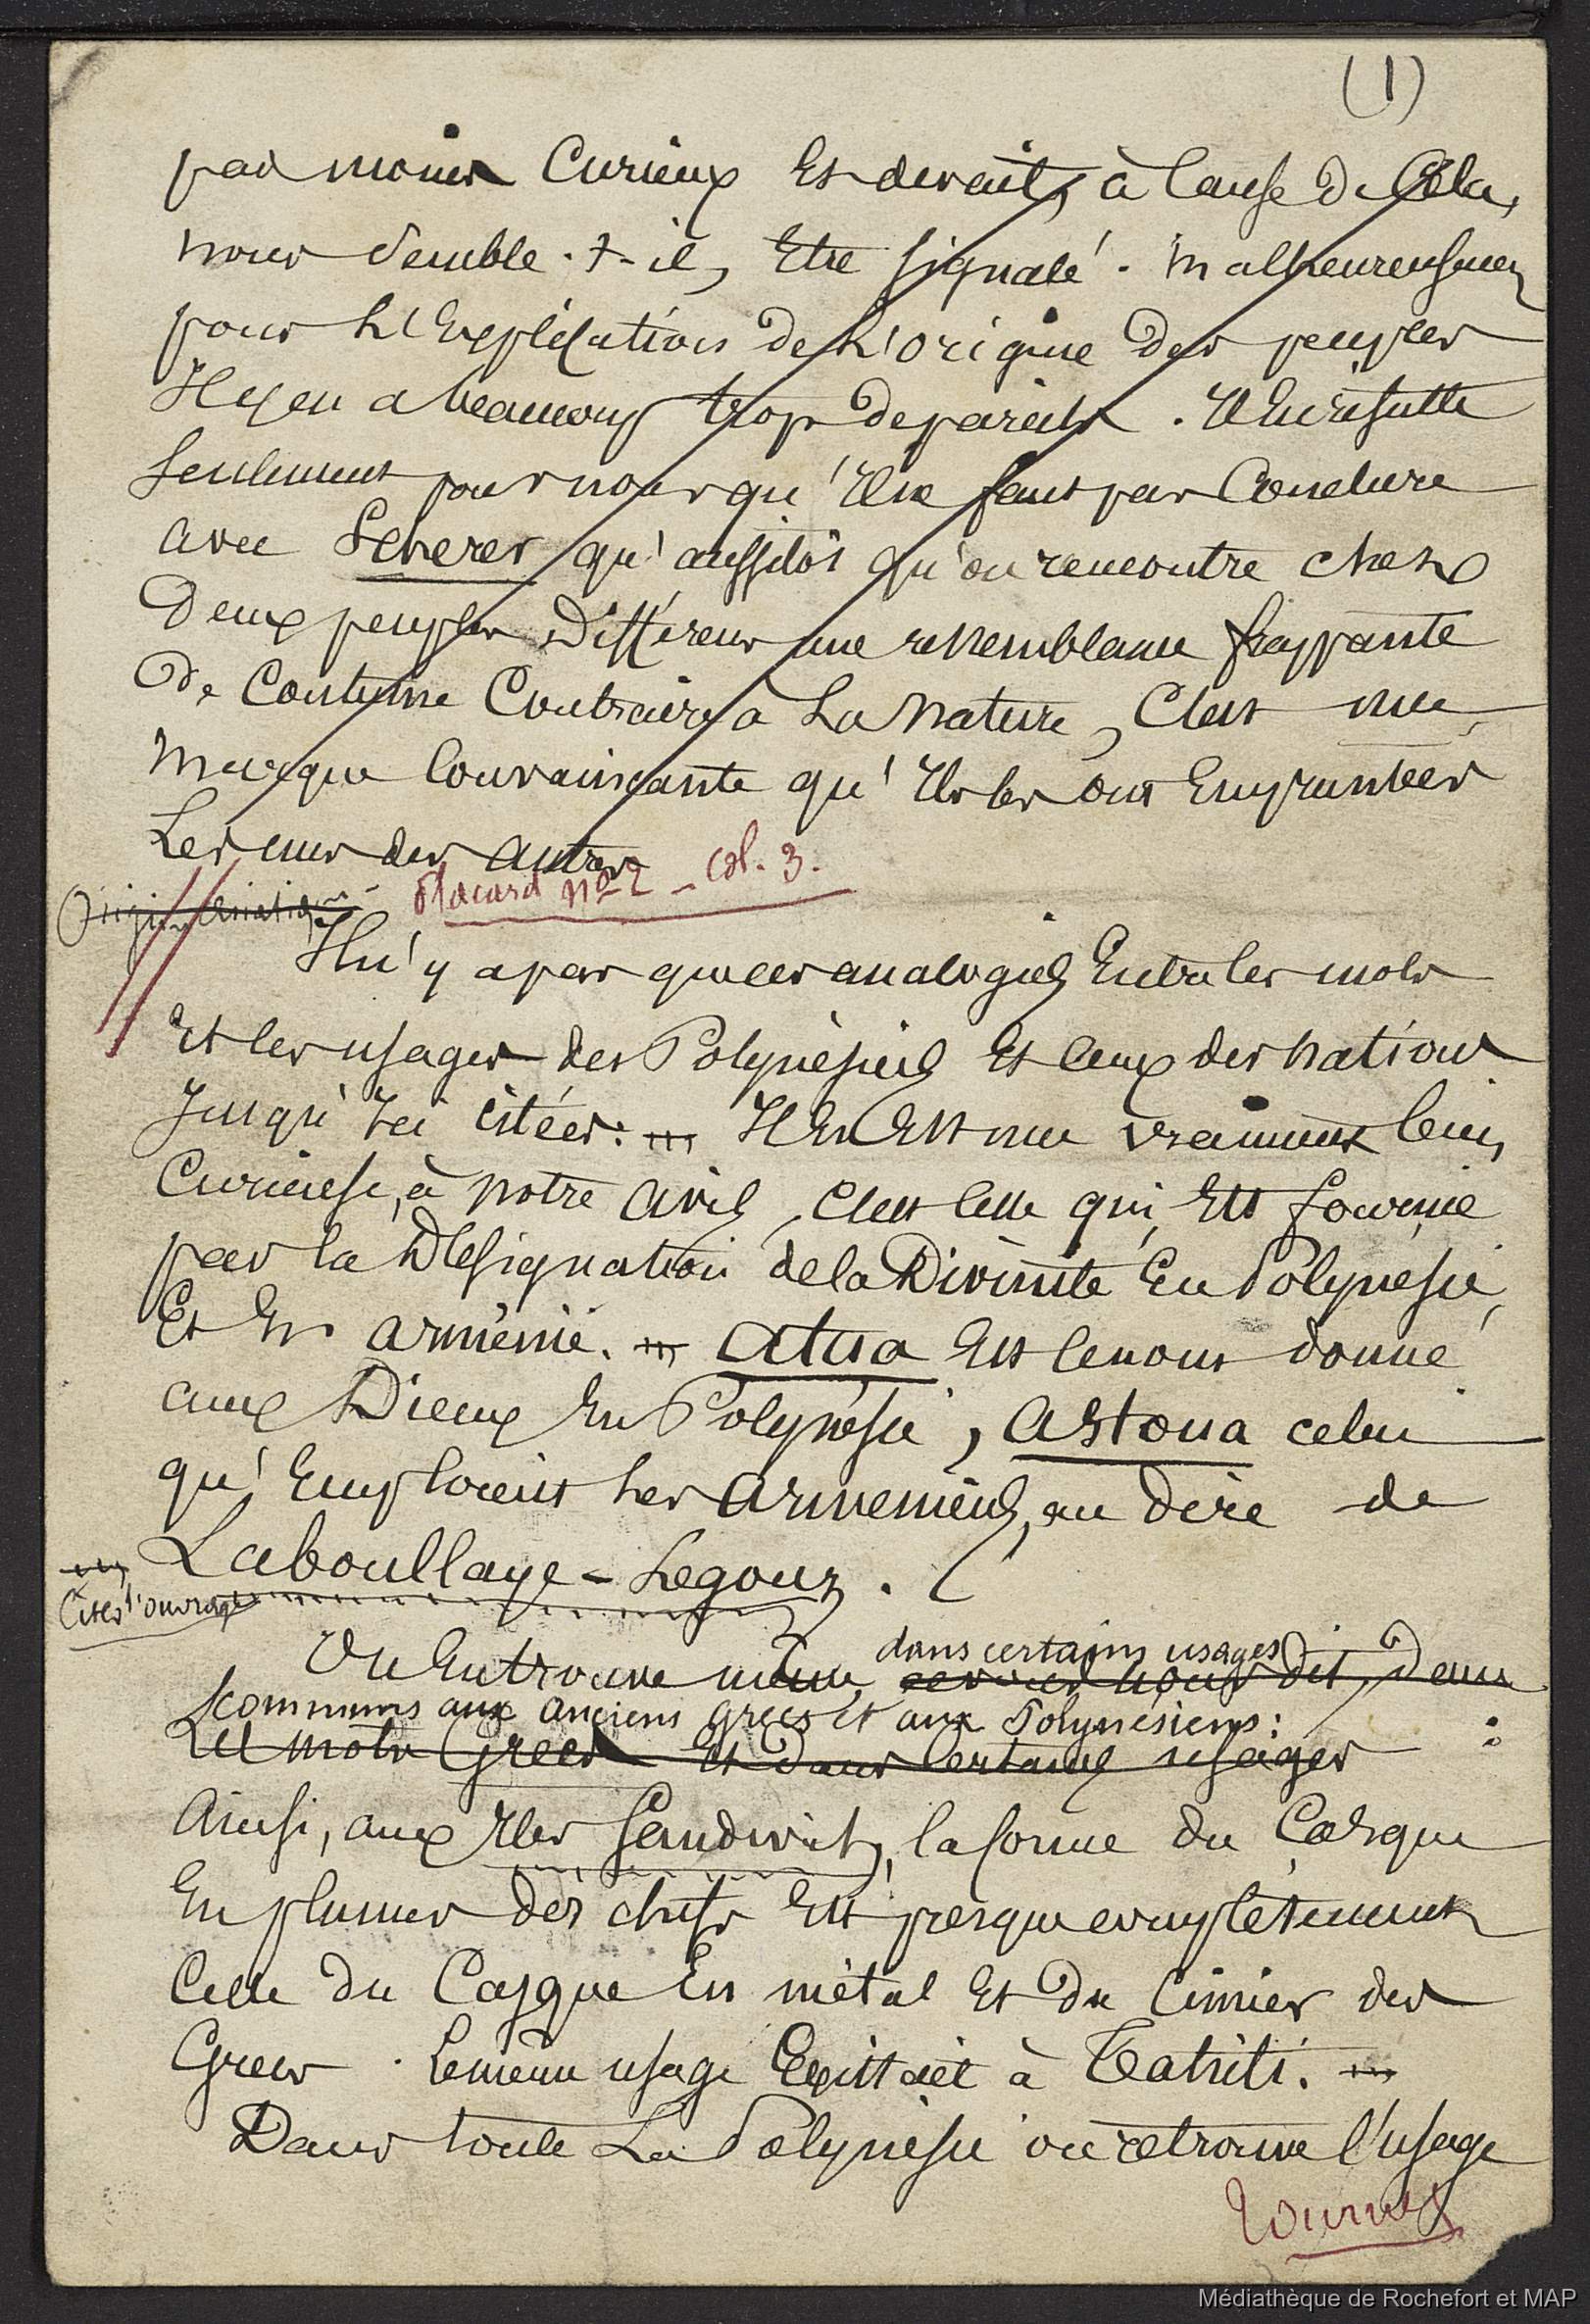 (1)
pas moins Curieux Et devait, à Cause de Cela,
nous Semble-t-il, Etre signalé. Malheureusement
pour L'Explication de L'origine des peuples
Il y en a beaucoup trop de pareils. Il En résulte
seulement pour nous qu'Il ne faut pas Conclure
avec Scherer qu'aussitôt qu'on rencontre chez
Deux peuples Différens une ressemblance frappante
De Coutume Contraire à La Nature, C'est une
Marque Convaincante qu'Ils les ont Empruntées
Les uns des autres
Placard no 2 - Col. 3.
Origine Asiatique
Il n'y a pas que ces analogies Entre les mots
Et les usages des Polynésiens Et Ceux des Nations
Jusqu'Ici citées: Il En Est une vraiment bien
Curieuse, à notre avis, C'est Celle qui Est fournie
par la Désignation de la Divinité En Polynésie,
Et En arménie. Atua Est le nom donné
aux Dieux En Polynésie, Astoua celui
qu'Employaient Les arméniens, au dire de
Laboullaye-Legouz. (
Citer l'ouvrage
On En trouve même dans certains usages
avons nous dit, Dans
communs aux anciens grecs et aux Polynésiens:
Les mots Grecs Et Dans Certains usages :
Ainsi, aux Iles Sandwich, la forme du Casque
En plumes des chefs Est presque complètement
Celle du Casque En métal Et du Cimier des
Grecs. Le même usage Existait à Tahiti.
Dans toute La Polynésie on retrouve l'usage
Tournez
Médiathèque de Rochefort et MAP